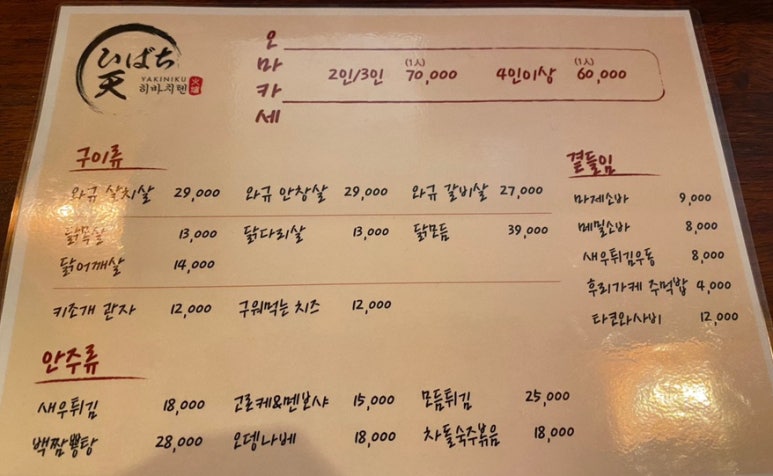 ひばち
天
YAKINIKU
히바치텐
오마카세
2인/3인 (1人) 70,000 4인이상 (1人) 60,000
구이류
와규 살치살 29,000 와규 안창살 29,000 와규 갈비살 27,000
13,000 닭다리살 13,000 닭모듬 39,000
닭어깨살 14,000
키조개 관자 12,000 구워먹는 치즈 12,000
곁들임
마제소바 9,000
메밀소바 8,000
새우튀김우동 8,000
후리가케 주먹밥 4,000
타코와사비 12,000
안주류
새우튀김 18,000 고로케&멘보샤 15,000 모듬튀김 25,000
백짬뽕탕 28,000 오뎅나베 18,000 차돌숙주볶음 18,000